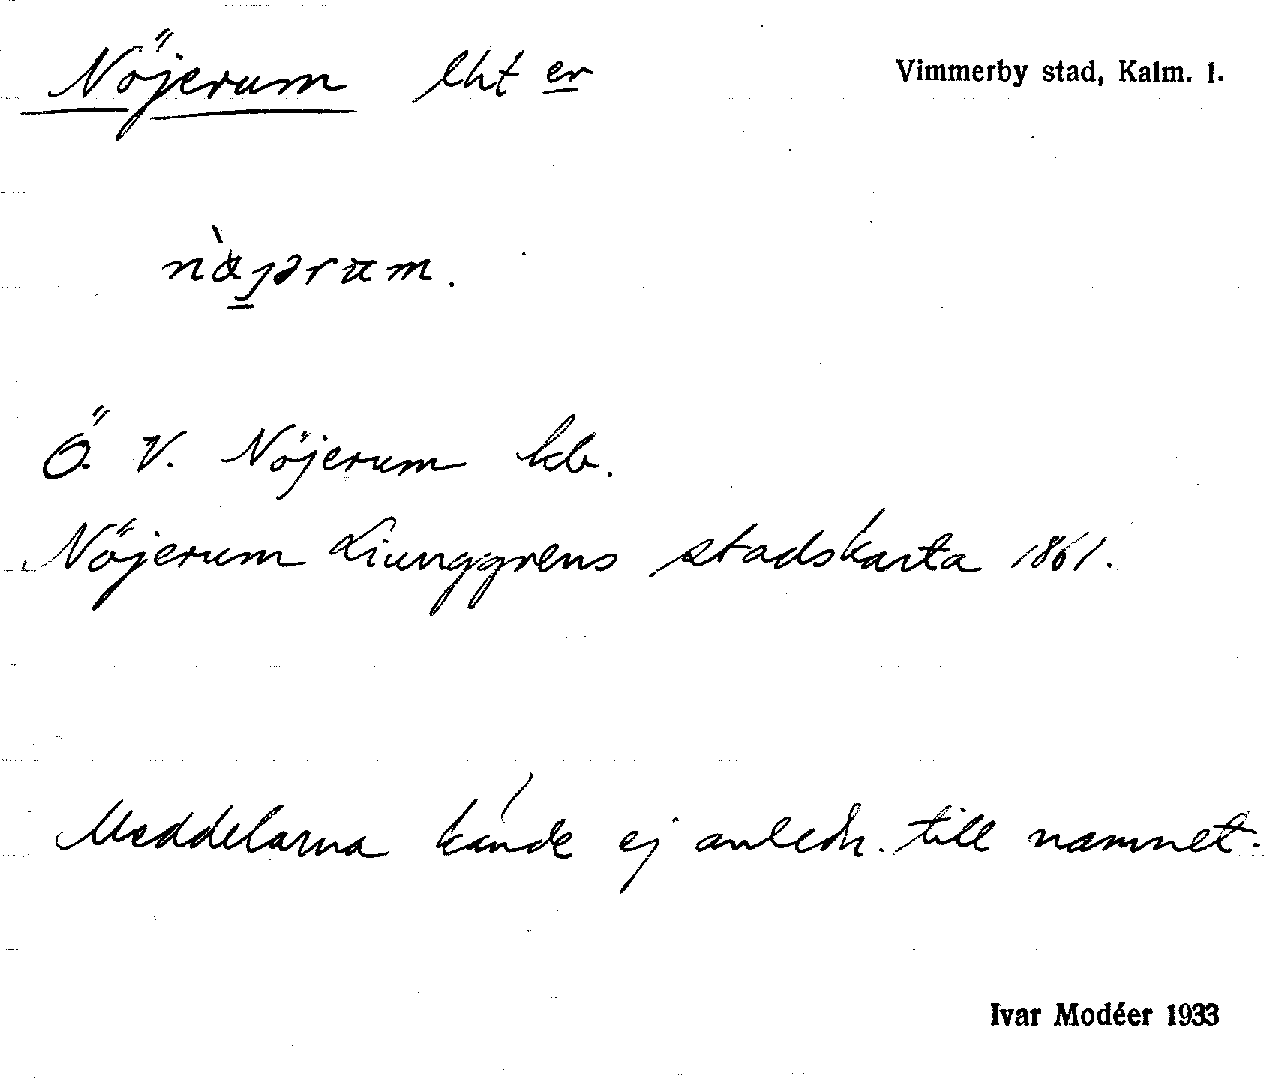 Nöjerum lht er
Vimmerby stad, Kalm. l.
nöjerum.
Ö. V. Nöjerum kb.
Nöjerum Liunggrens stadskarta 1861.
Meddelarna kände ej anledn. till namnet.
Ivar Modéer 1933